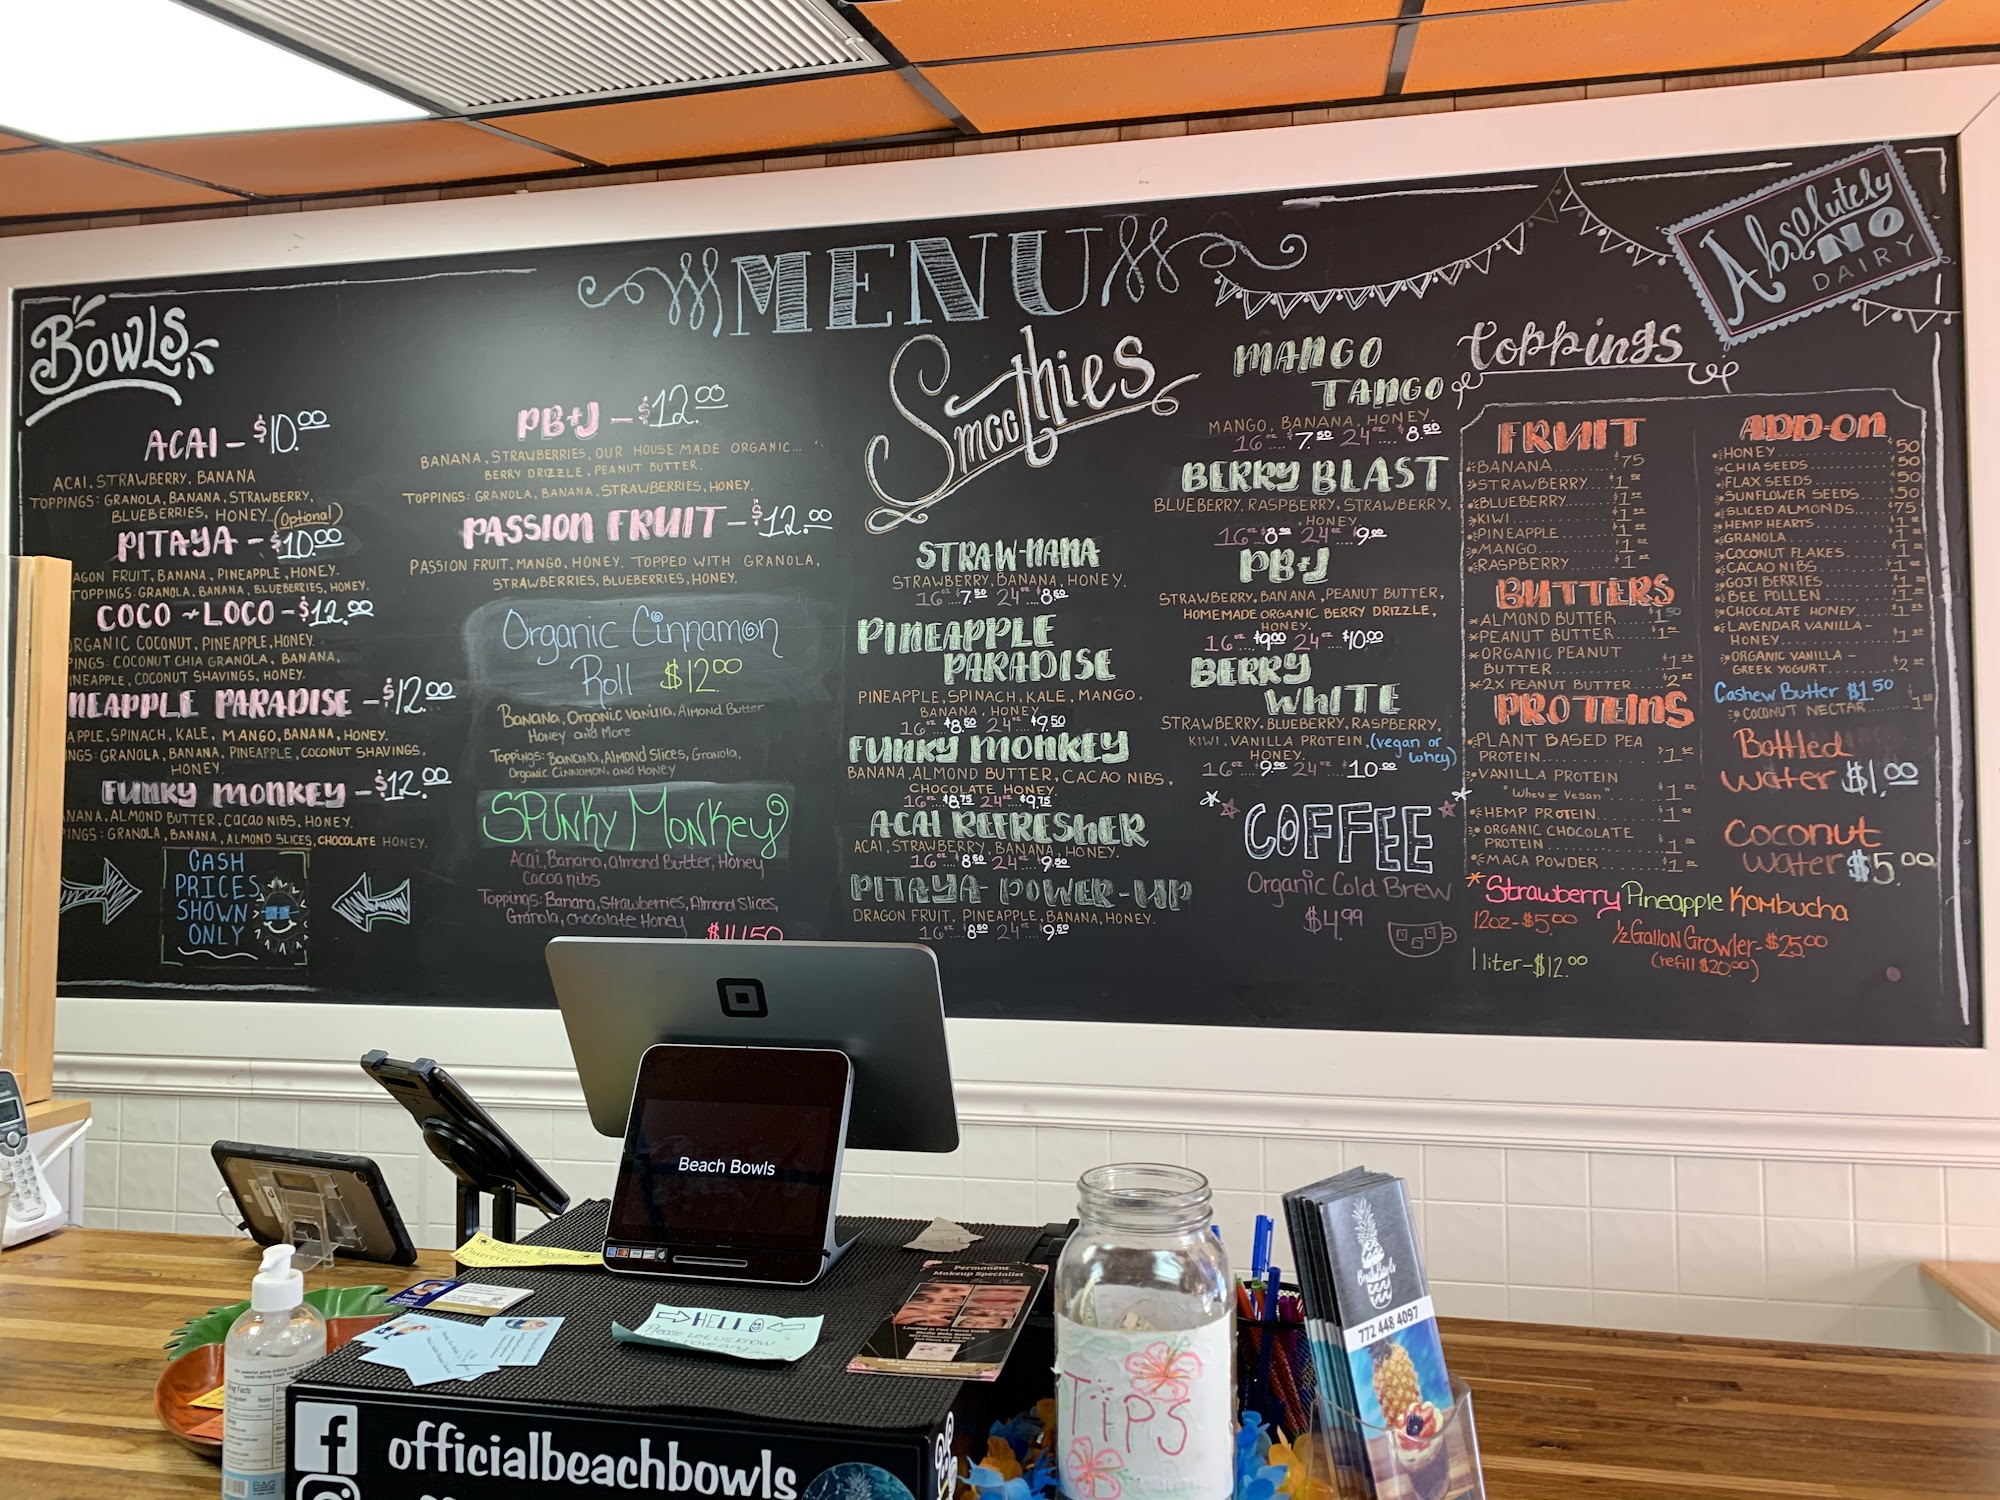 MENU
Absolutely
NO
DAIRY
BOWLS
ACAI - $10.00
ACAI, STRAWBERRY, BANANA
TOPPINGS: GRANOLA, BANANA, STRAWBERRY,
BLUEBERRIES, HONEY (Optional)
PITAYA - $10.00
AGON FRUIT, BANANA, PINEAPPLE, HONEY.
TOPPINGS: GRANOLA, BANANA, BLUEBERRIES, HONEY.
COCO ~ LOCO - $12.00
ORGANIC COCONUT, PINEAPPLE, HONEY.
PINGS: COCONUT CHIA GRANOLA, BANANA,
INEAPPLE, COCONUT SHAVINGS, HONEY.
NEAPPLE PARADISE - $12.00
APPLE, SPINACH, KALE, MANGO, BANANA, HONEY.
NGS: GRANOLA, BANANA, PINEAPPLE, COCONUT SHAVINGS,
HONEY.
FUNKY MONKEY - $12.00
NANA, ALMOND BUTTER, CACAO NIBS, HONEY.
PINGS: GRANOLA, BANANA, ALMOND SLICES, CHOCOLATE HONEY.
CASH
PRICES
SHOWN
ONLY
PB+J - $12.00
BANANA, STRAWBERRIES, OUR HOUSE MADE ORGANIC...
BERRY DRIZZLE, PEANUT BUTTER.
TOPPINGS: GRANOLA, BANANA, STRAWBERRIES, HONEY.
PASSION FRUIT - $12.00
PASSION FRUIT, MANGO, HONEY. TOPPED WITH GRANOLA,
STRAWBERRIES, BLUEBERRIES, HONEY.
Organic Cinnamon
Roll $12.00
Banana, Organic Vanilla, Almond Butter
Honey and More
Toppings: Banana, Almond Slices, Granola,
Organic Cinnamon, and Honey
SPUNKY MONKEY
Acai, Banana, almond Butter, Honey
Cacao nibs
Toppings: Banana, Strawberries, Almond Slices,
Granola, Chocolate Honey
$11.50
Smoothies
STRAW-NANA
STRAWBERRY, BANANA, HONEY.
16oz....7.50 24oz....8.50
PINEAPPLE
PARADISE
PINEAPPLE, SPINACH, KALE, MANGO,
BANANA, HONEY
16oz....$8.50 24oz...$9.50
FUNKY MONKEY
BANANA, ALMOND BUTTER, CACAO NIBS,
CHOCOLATE HONEY.
16oz....$8.75 24oz...$9.75
ACAI REFRESHER
ACAI, STRAWBERRY, BANANA, HONEY.
16oz....$8.50 24oz....$9.50
PITAYA POWER-UP
DRAGON FRUIT, PINEAPPLE, BANANA, HONEY.
16oz....$8.50 24oz....$9.50
MANGO
TANGO
MANGO, BANANA, HONEY.
16oz...$7.50 24oz....$8.50
BERRY BLAST
BLUEBERRY, RASPBERRY, STRAWBERRY,
HONEY
16oz...$8.00 24oz....$9.00
PB+J
STRAWBERRY, BANANA, PEANUT BUTTER,
HOMEMADE ORGANIC BERRY DRIZZLE,
HONEY.
16oz...$9.00 24oz...$10.00
BERRY
WHITE
STRAWBERRY, BLUEBERRY, RASPBERRY,
KIWI, VANILLA PROTEIN, (vegan or
HONEY. whey)
16oz....9.00 24oz....10.00
COFFEE
Organic Cold Brew
$4.99
toppings
FRUIT
BANANA $.75
STRAWBERRY $1.00
BLUEBERRY $1.00
KIWI $1
PINEAPPLE $1
MANGO $1
RASPBERRY $1
BUTTERS
ALMOND BUTTER $1.50
PEANUT BUTTER $1.00
ORGANIC PEANUT
BUTTER $1.25
2X PEANUT BUTTER $2.00
PROTEINS
PLANT BASED PEA
PROTEIN $1
VANILLA PROTEIN
"Whey or Vegan" $1
HEMP PROTEIN $1
ORGANIC CHOCOLATE
PROTEIN $1
MACA POWDER $1
ADD-ON
HONEY $.50
CHIA SEEDS .50
FLAX SEEDS .50
SUNFLOWER SEEDS .50
SLICED ALMONDS $.75
HEMP HEARTS $1
GRANOLA $1
COCONUT FLAKES $1
CACAO NIBS $1
GOJI BERRIES $1
BEE POLLEN $1
CHOCOLATE HONEY $1
LAVENDAR VANILLA-
HONEY $1
ORGANIC VANILLA-
GREEK YOGURT $2
Cashew Butter $1.50
COCONUT NECTAR 1
Bottled
Water $1.00
Coconut
Water $5.00
Strawberry Pineapple Kombucha
12oz-$5.00
1/2 Gallon Growler-$25.00
(refill $20.00)
1 liter-$12.00
Beach Bowls
HELLO
Please let us know
Permanent
Makeup Specialist
TIPS
Beach Bowls
772 448 4097
officialbeachbowls